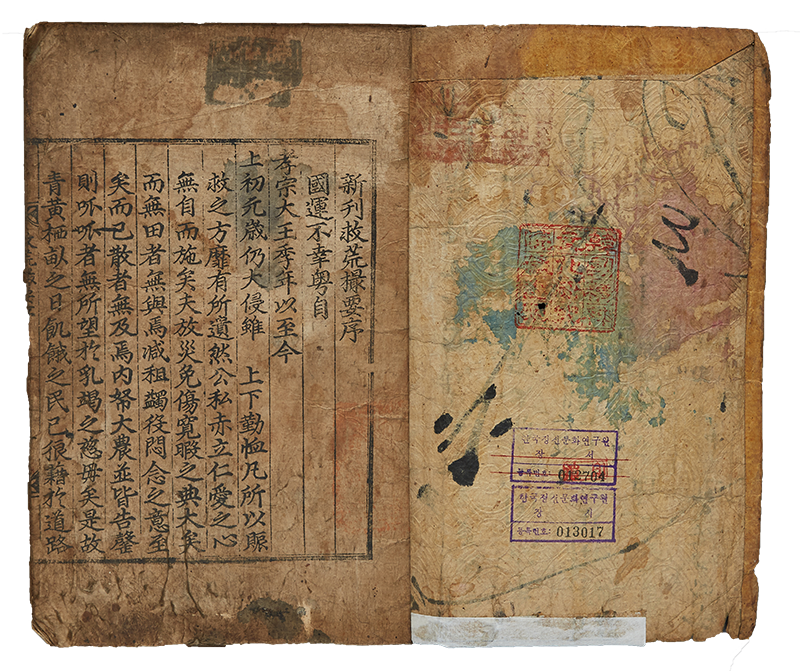 한국정신문화연구원
장 서
등록번호: 012704
한국정신문화연구원
장 서
등록번호: 013017
新刊救荒撮要序
國運不幸粤自
孝宗大王季年以至今
上初元歳仍大侵雖 上下勤恤凡所以賑
救之方靡有所遺然公私赤立仁愛之心
無自而施矣夫放災免傷寬暇之典大矣
而無田者無與焉减租蠲役悶念之意至
矣而已散者無及焉内帑大農並皆告罄
則呱呱者無所望於乳竭之慈毋矣是故
青黃栖畝之日飢餓之民已狼藉於道路